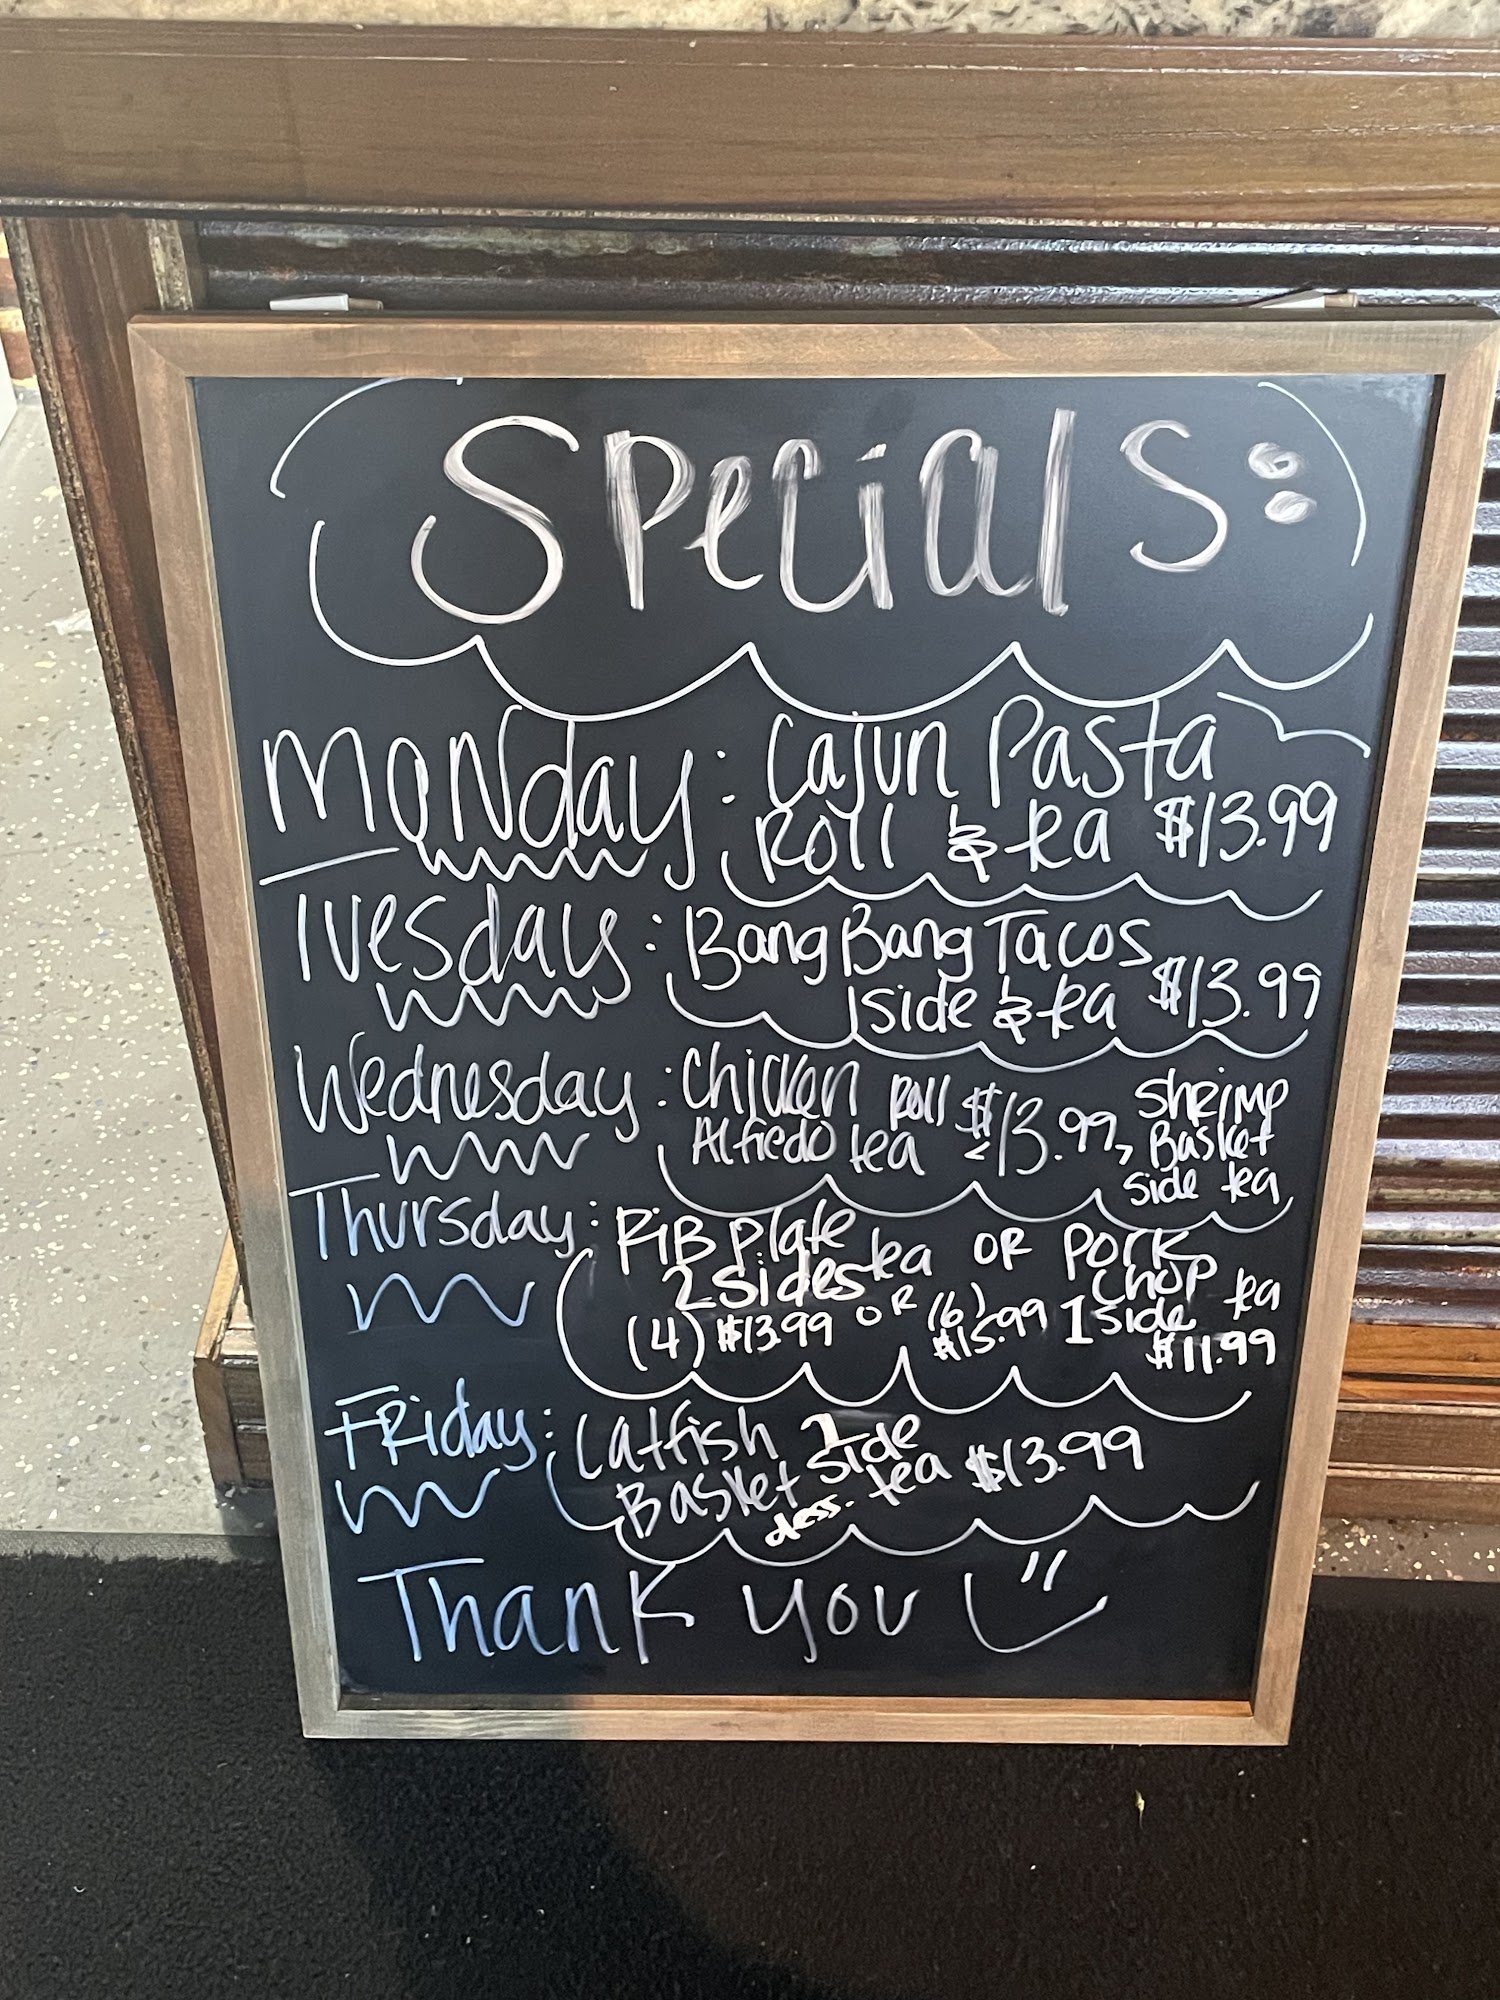 Specials:
Monday: Cajun Pasta
Roll & tea $13.99
Tuesday: Bang Bang Tacos
1 side & tea $13.99
Wednesday: Chicken Roll $13.99, Shrimp
Alfredo tea Basket
side tea
Thursday: Rib Plate tea OR Pork
2 sides Chop tea
(4) $13.99 OR (6) $15.99 1 side
$11.99
Friday: Catfish 1 side
Basket tea $13.99
dess.
Thank you